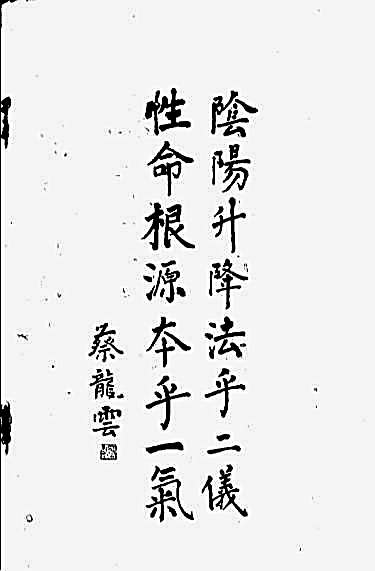 陰陽升降法乎二儀
性命根源本乎一氣
蔡龍雲